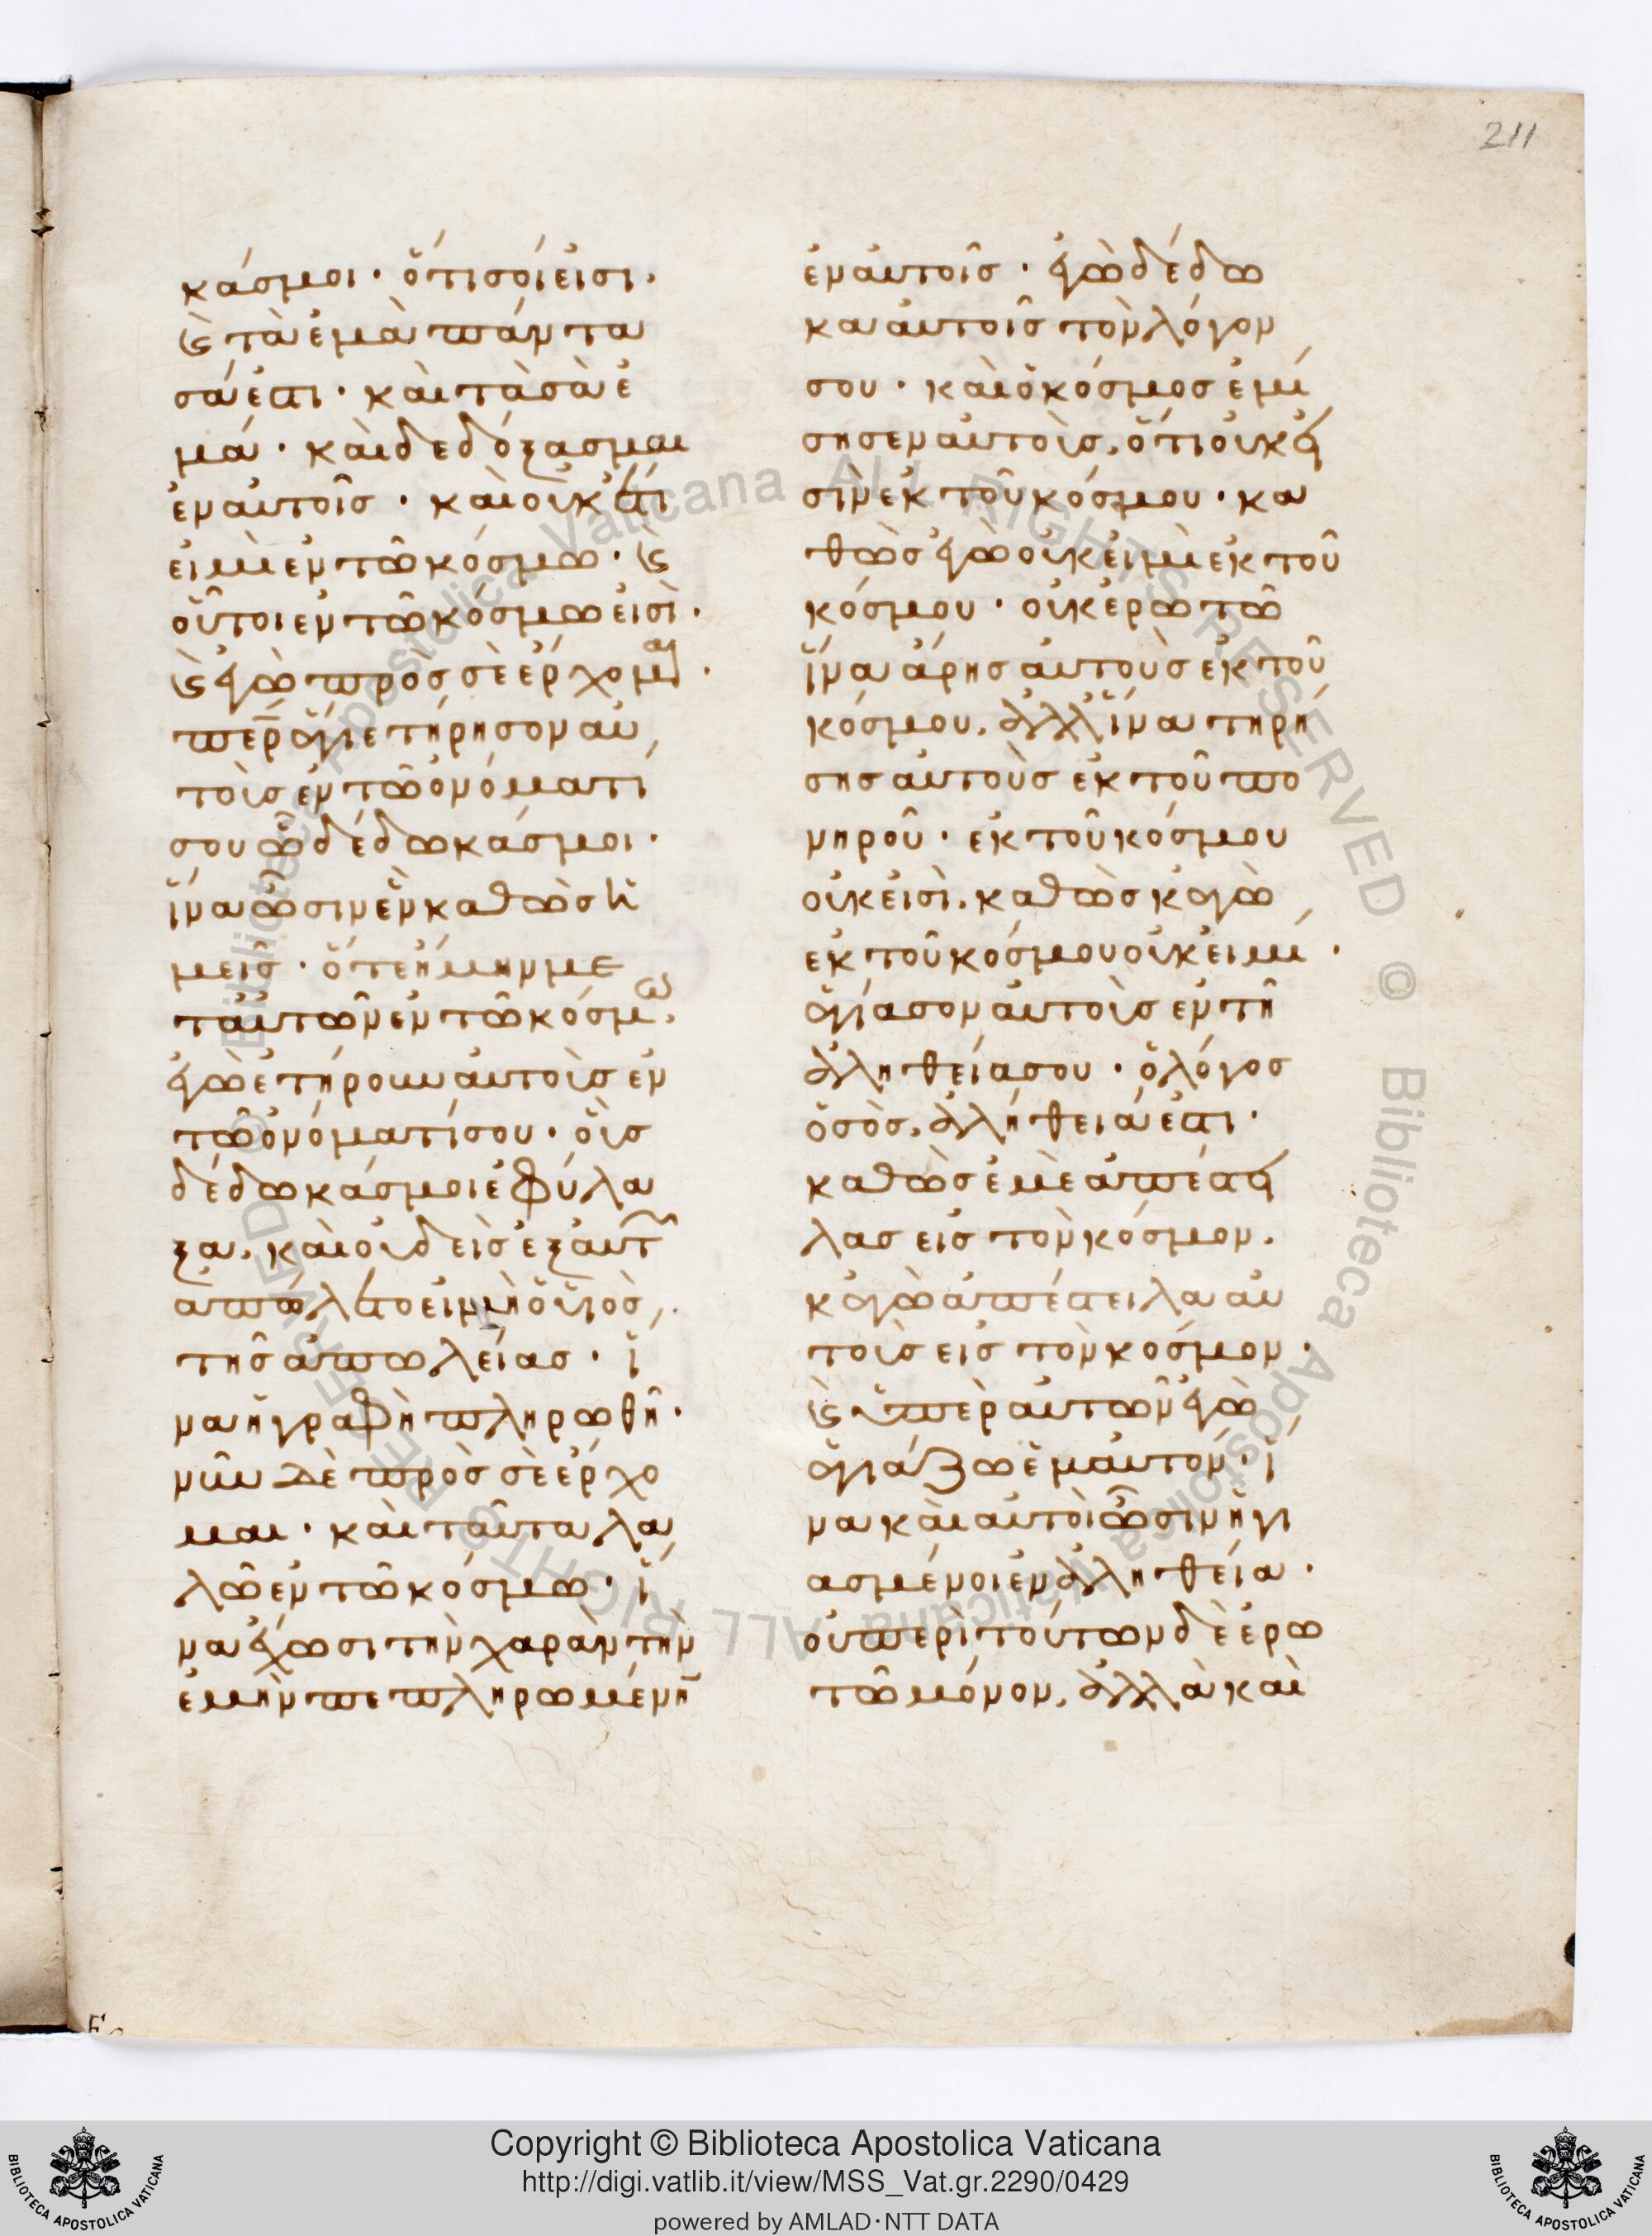 211
κάς μοι · ὅτι σοί εἰσι,
ϗ τὰ ἐμὰ πάντα
σά ἐστι · καὶ τὰ σὰ ἐ
μά · καὶ δεδόξασμαι
ἐν αὐτοῖς · καὶ οὐκέτι
εἰμὶ ἐν τῶ κόσμω · ϗ
οὗτοι ἐν τῶ κόσμω εἰσὶ ·
ϗ ἐγὼ πρός σὲ ἔρχομαι ·
περ ἅγιε τήρησον αὐ
τοὺς ἐν τῶ ὀνόματί
σου ὧ δέδωκάς μοι ·
ἵνα ὦσιν ἓν καθὼς ἡ
μεῖς · ὅτε ἤμην με
τ αὐτῶν ἐν τῶ κόσμω,
ἐγὼ ἐτήρουν αὐτοὺς ἐν
τῶ ὀνόματί σου · οὓς
δέδωκάς μοι ἐφύλα
ξα, καὶ οὐδεὶς ἐξ αὐτ
ἀπώλετο εἰ μὴ ὁ υἱὸς
τῆς ἀπωλείας · ἵ
να ἡ γραφὴ πληρωθῆ ·
νῦν δὲ πρὸς σὲ ἔρχο
μαι · καὶ ταῦτα λα
λῶ ἐν τῶ κόσμω · ἵ
να ἔχωσι τὴν χαρὰν τὴν
ἐμὴν πεπληρωμένη
ἐν αὐτοῖς · ἐγὼ δέδω
κα αὐτοῖς τὸν λόγον
σου · καὶ ὁ κόσμος ἐμί
σησεν αὐτοὺς, ὅτι οὐκ εἰ
σὶν ἐκ τοῦ κόσμου · κα
θὼς ἐγὼ οὐκ εἰμὶ ἐκ τοῦ
κόσμου · οὐκ ἐρωτῶ
ἵνα ἄρης αὐτοὺς ἐκ τοῦ
κόσμου, ἀλλ ἵνα τηρή
σης αὐτοὺς ἐκ τοῦ πο
νηροῦ · ἐκ τοῦ κόσμου
οὐκ εἰσὶ, καθὼς κἀγὼ
ἐκ τοῦ κόσμου οὐκ εἰμί ·
ἁγίασον αὐτοὺς ἐν τῆ
ἀληθεία σου · ὁ λόγος
ὁ σὸς, ἀλήθειά ἐστι ·
καθὼς ἐμὲ ἀπέστει
λας εἰς τὸν κόσμον,
κἀγὼ ἀπέστειλα αὐ
τοὺς εἰς τὸν κόσμον ·
ϗ ὑπὲρ αὐτῶν ἐγὼ
ἁγιάζω ἐμαυτόν · ἵ
να καὶ αὐτοὶ ὦσιν ἡγι
ασμένοι ἐν ἀληθεία ·
οὐ περὶ τούτων δὲ ἐρω
τῶ μόνον, ἀλλὰ καὶ
Copyright © Biblioteca Apostolica Vaticana
http://digi.vatlib.it/view/MSS_Vat.gr.2290/0429
powered by AMLAD·NTT DATA